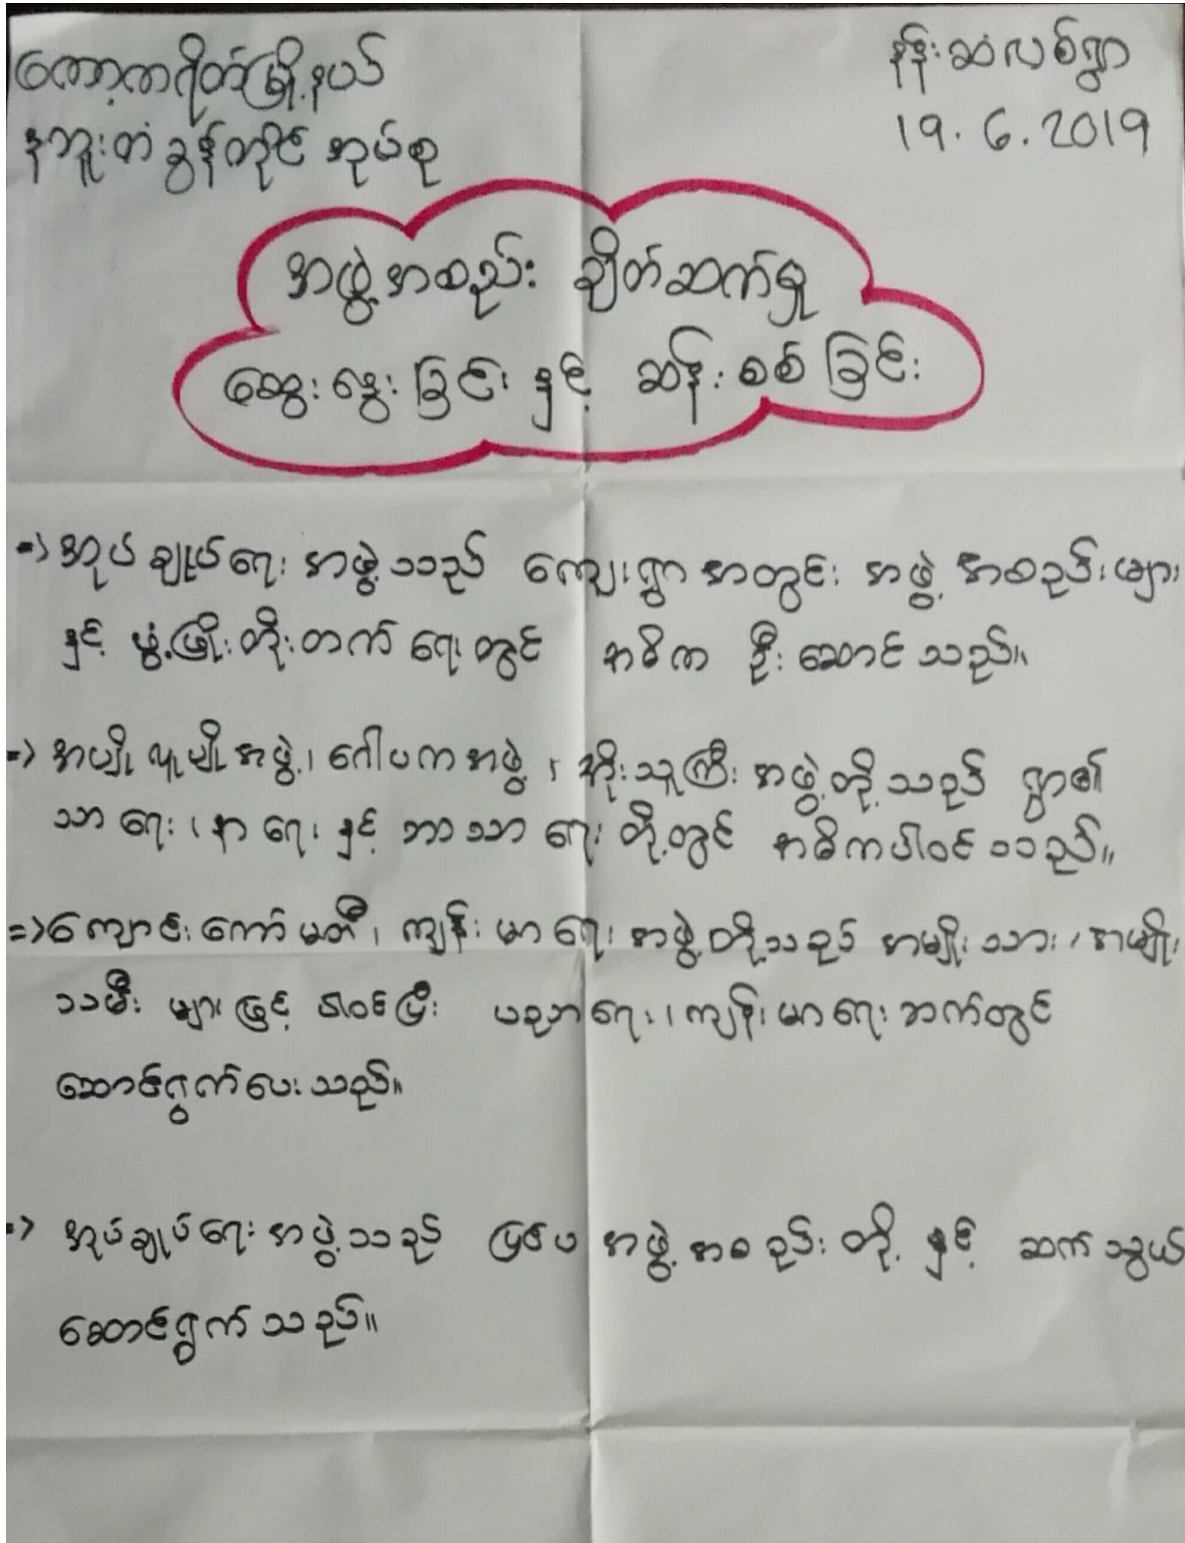 ကော့ကရိတ်မြို့နယ်
နဘူးတံခွန်တိုင်အုပ်စု
နန်းဆံလစ်ရွာ
19.6.2019
အဖွဲ့အစည်း ချိတ်ဆက်မှု
ဆွေးနွေးခြင်း နှင့် ဆန်းစစ်ခြင်း
=> အုပ်ချုပ်ရေး အဖွဲ့သည် ကျေးရွာ အတွင်း အဖွဲ့ အစည်းများ
နှင့် ဖွံ့ဖြိုးတိုးတက် ရေးတွင် အဓိက ဦးဆောင်သည်။
=> အမျိုးသမျိုးအဖွဲ့၊ ဂေါပကအဖွဲ့၊ အိုးသူကြီး အဖွဲ့တို့သည် ရွာ၏
သာရေး၊ နာရေး နှင့် ဘာသာရေး တို့တွင် အဓိကပါဝင်သည်။
=> ကျောင်းကော်မတီ၊ ကျန်းမာရေး အဖွဲ့တို့သည် အမျိုးသား၊ အမျိုး
သမီး များဖြင့် ပါဝင်ပြီး ပညာရေး၊ ကျန်းမာရေးဘက်တွင်
ဆောင်ရွက်ပေးသည်။
=> အုပ်ချုပ်ရေးအဖွဲ့သည် ပြင်ပ အဖွဲ့အစည်း တို့ နှင့် ဆက်သွယ်
ဆောင်ရွက်သည်။